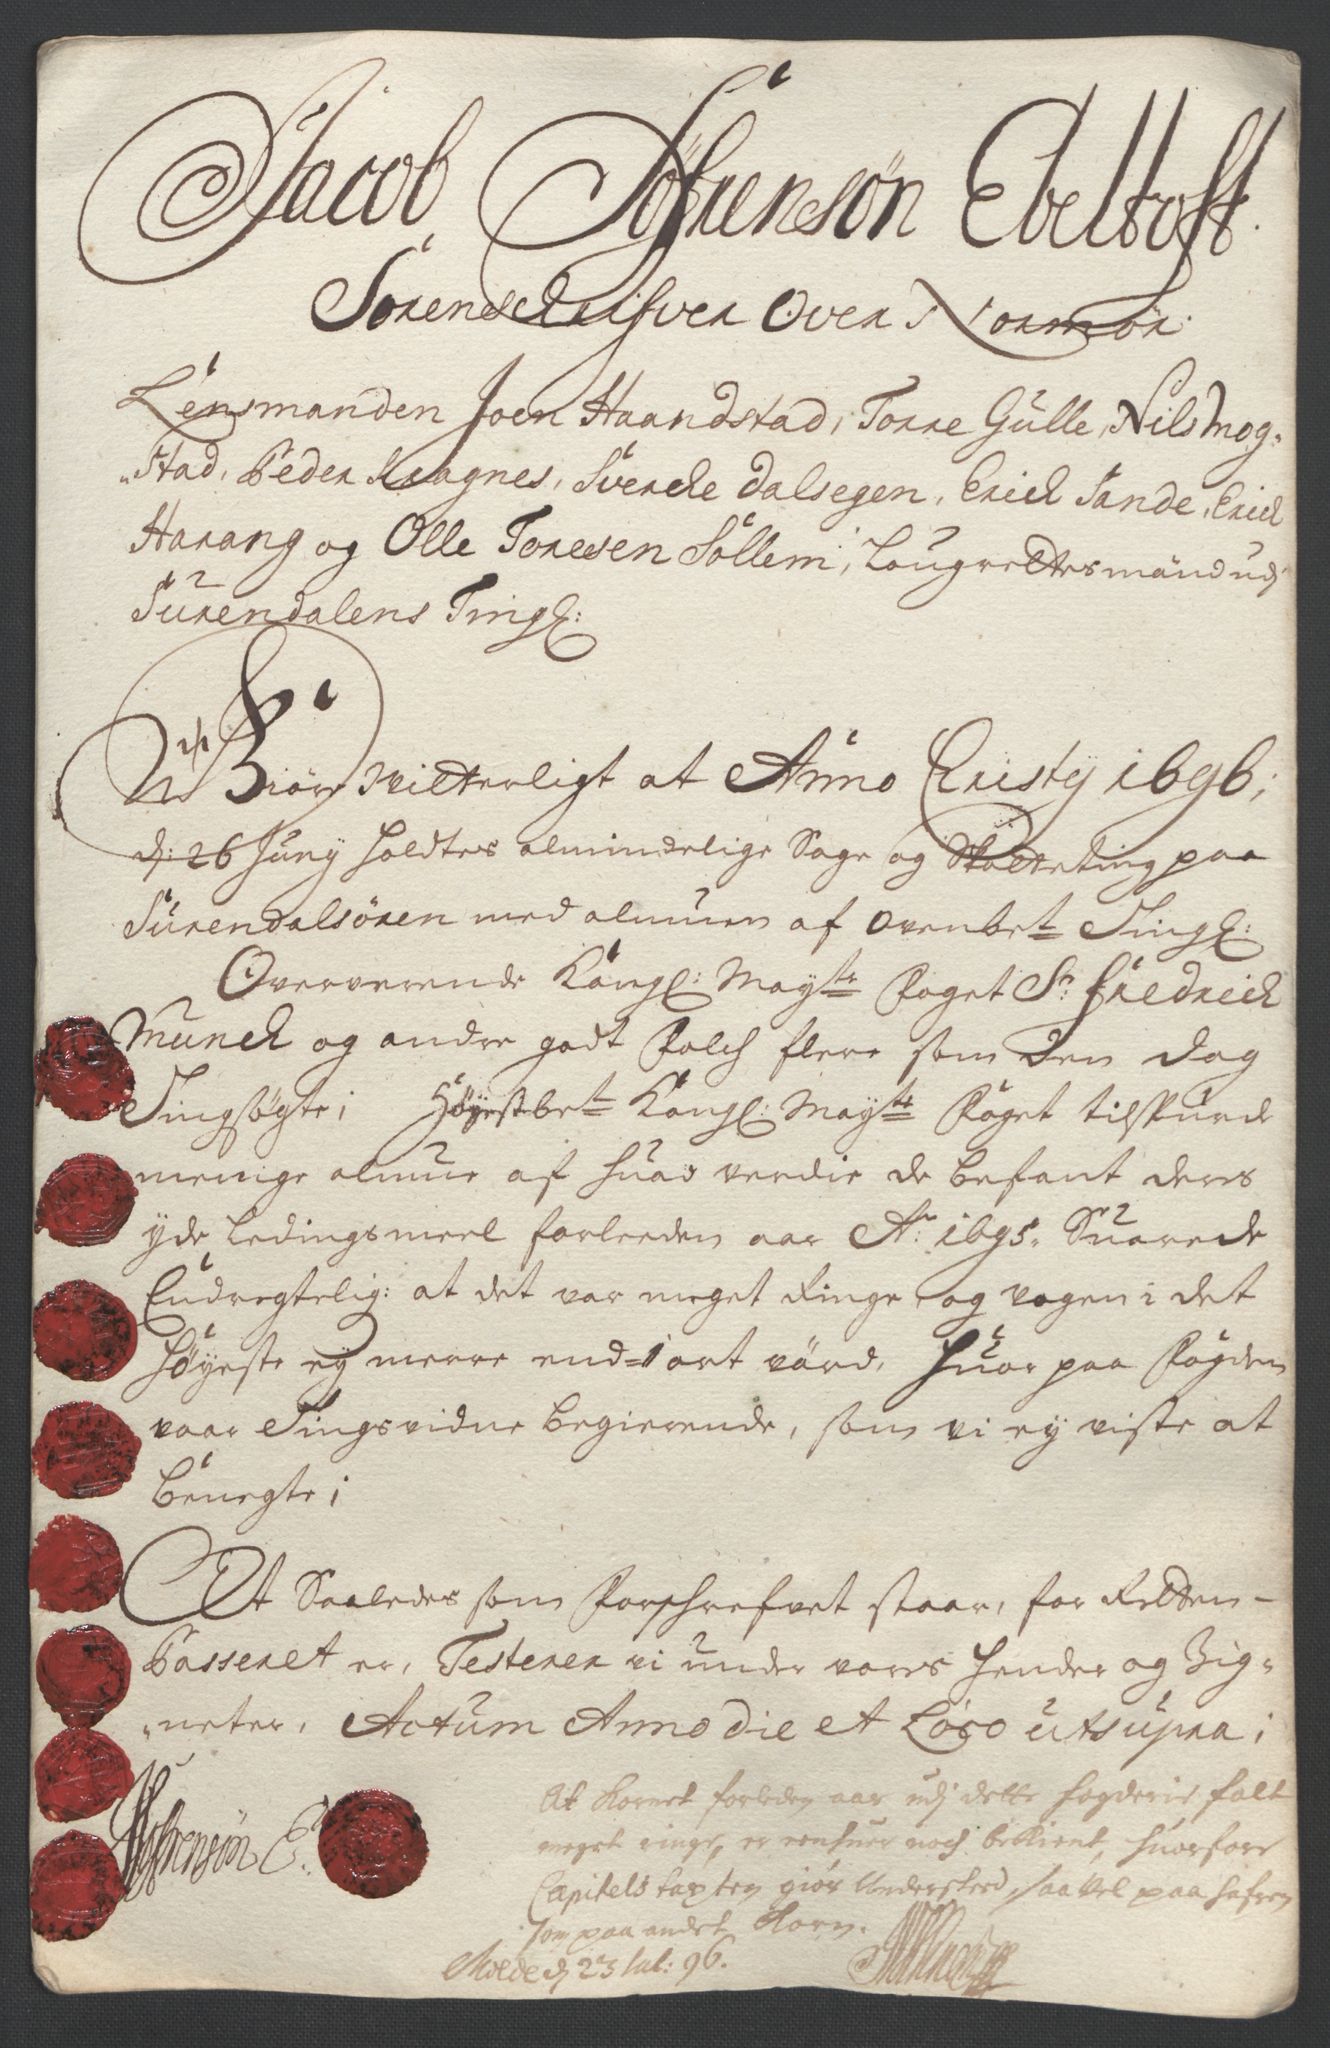 Jacob Söfrensøn Ebeltoft
Sorenschrifver Over Normør.
Lensmanden Joen Haandstad, Torre Gulle, Nils Mog-
stad, Peder Kragnes, Svercke Dalsegen, Erick Sande, Erick
Harang og Olle Toresen Sollem, Laugrettes mænd udj
Surendalens Tingl:
Giør Vitterligt at Anno Cristy 1696,
d: 26 Juny holdtes almindelige Sage og Skatteting paa
Surendalsøren med almuen af ovenbete Tingl:
Oververende Kongl: Mayts Foget Sr Fredrick
Munck og andre godt Folch flere som den dag
Tingsøgte; Høyestbete Kongl: Mayts Foget tilspurde
menige almue af huad verdie de befant deres
yde Ledingsmeel forleeden aar Ao 1695. Suarede
Endregtelig: at det var meget Ringe og vogen i det
høyeste ey merre end 1 ort värd, Huor paa Fogden
vaar Tingsvidne begierende, som vi ey viste at
benegte;
At Saaledes som Forschrefvet staar, for Retten
Passeret er, Testerer vi under vores Hender og Zig-
neter, Actum Anno die et Loco utsupra;
At Kornet forleden aar udj dette fogderie falt
meget ringe, er eenhuer noch bekient, huorfore
Capitels taxten giør Underskeed, saa vel paa hafren
som paa andet Korn.
Molde d 23 Jul: 96.